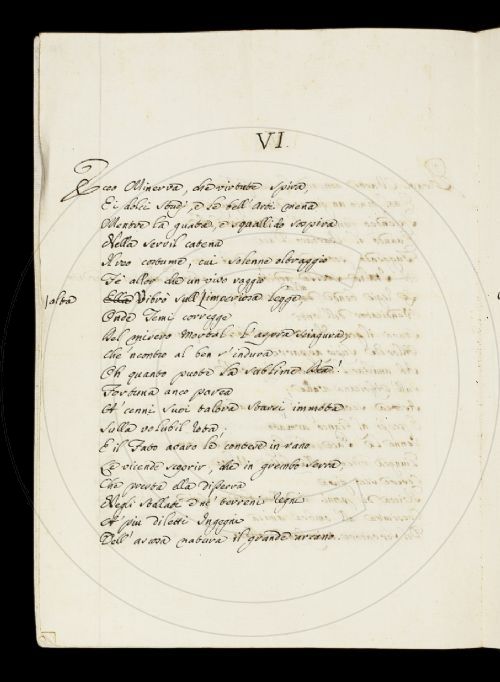 VI.
Ecco Minerva, che virtute spira,
E i dolci studj, e le bell' Arti mena
Mentre la guata, e squallido sospira
Nella servil catena
Il reo costume, cui solenne oltraggio
Fe' allor che un vivo raggio
alta
Vibrò sull' imperiosa legge,
Onde Temi corregge
Del misero Mortal l' aspra sciagura,
Che 'ncontro al ben s' indura.
Oh quanto puote la sublime Dea!
Fortuna anco parea
A' cenni suoi talora starsi immota
Sulla volubil rota;
E il Fato avaro le contese in vano
Le vicende scoprir, che in grembo serra,
Che presta ella disserra
Negli stellati e ne' terreni Regni
A' più diletti Ingegni
Dell' ascosa natura il grande arcano.